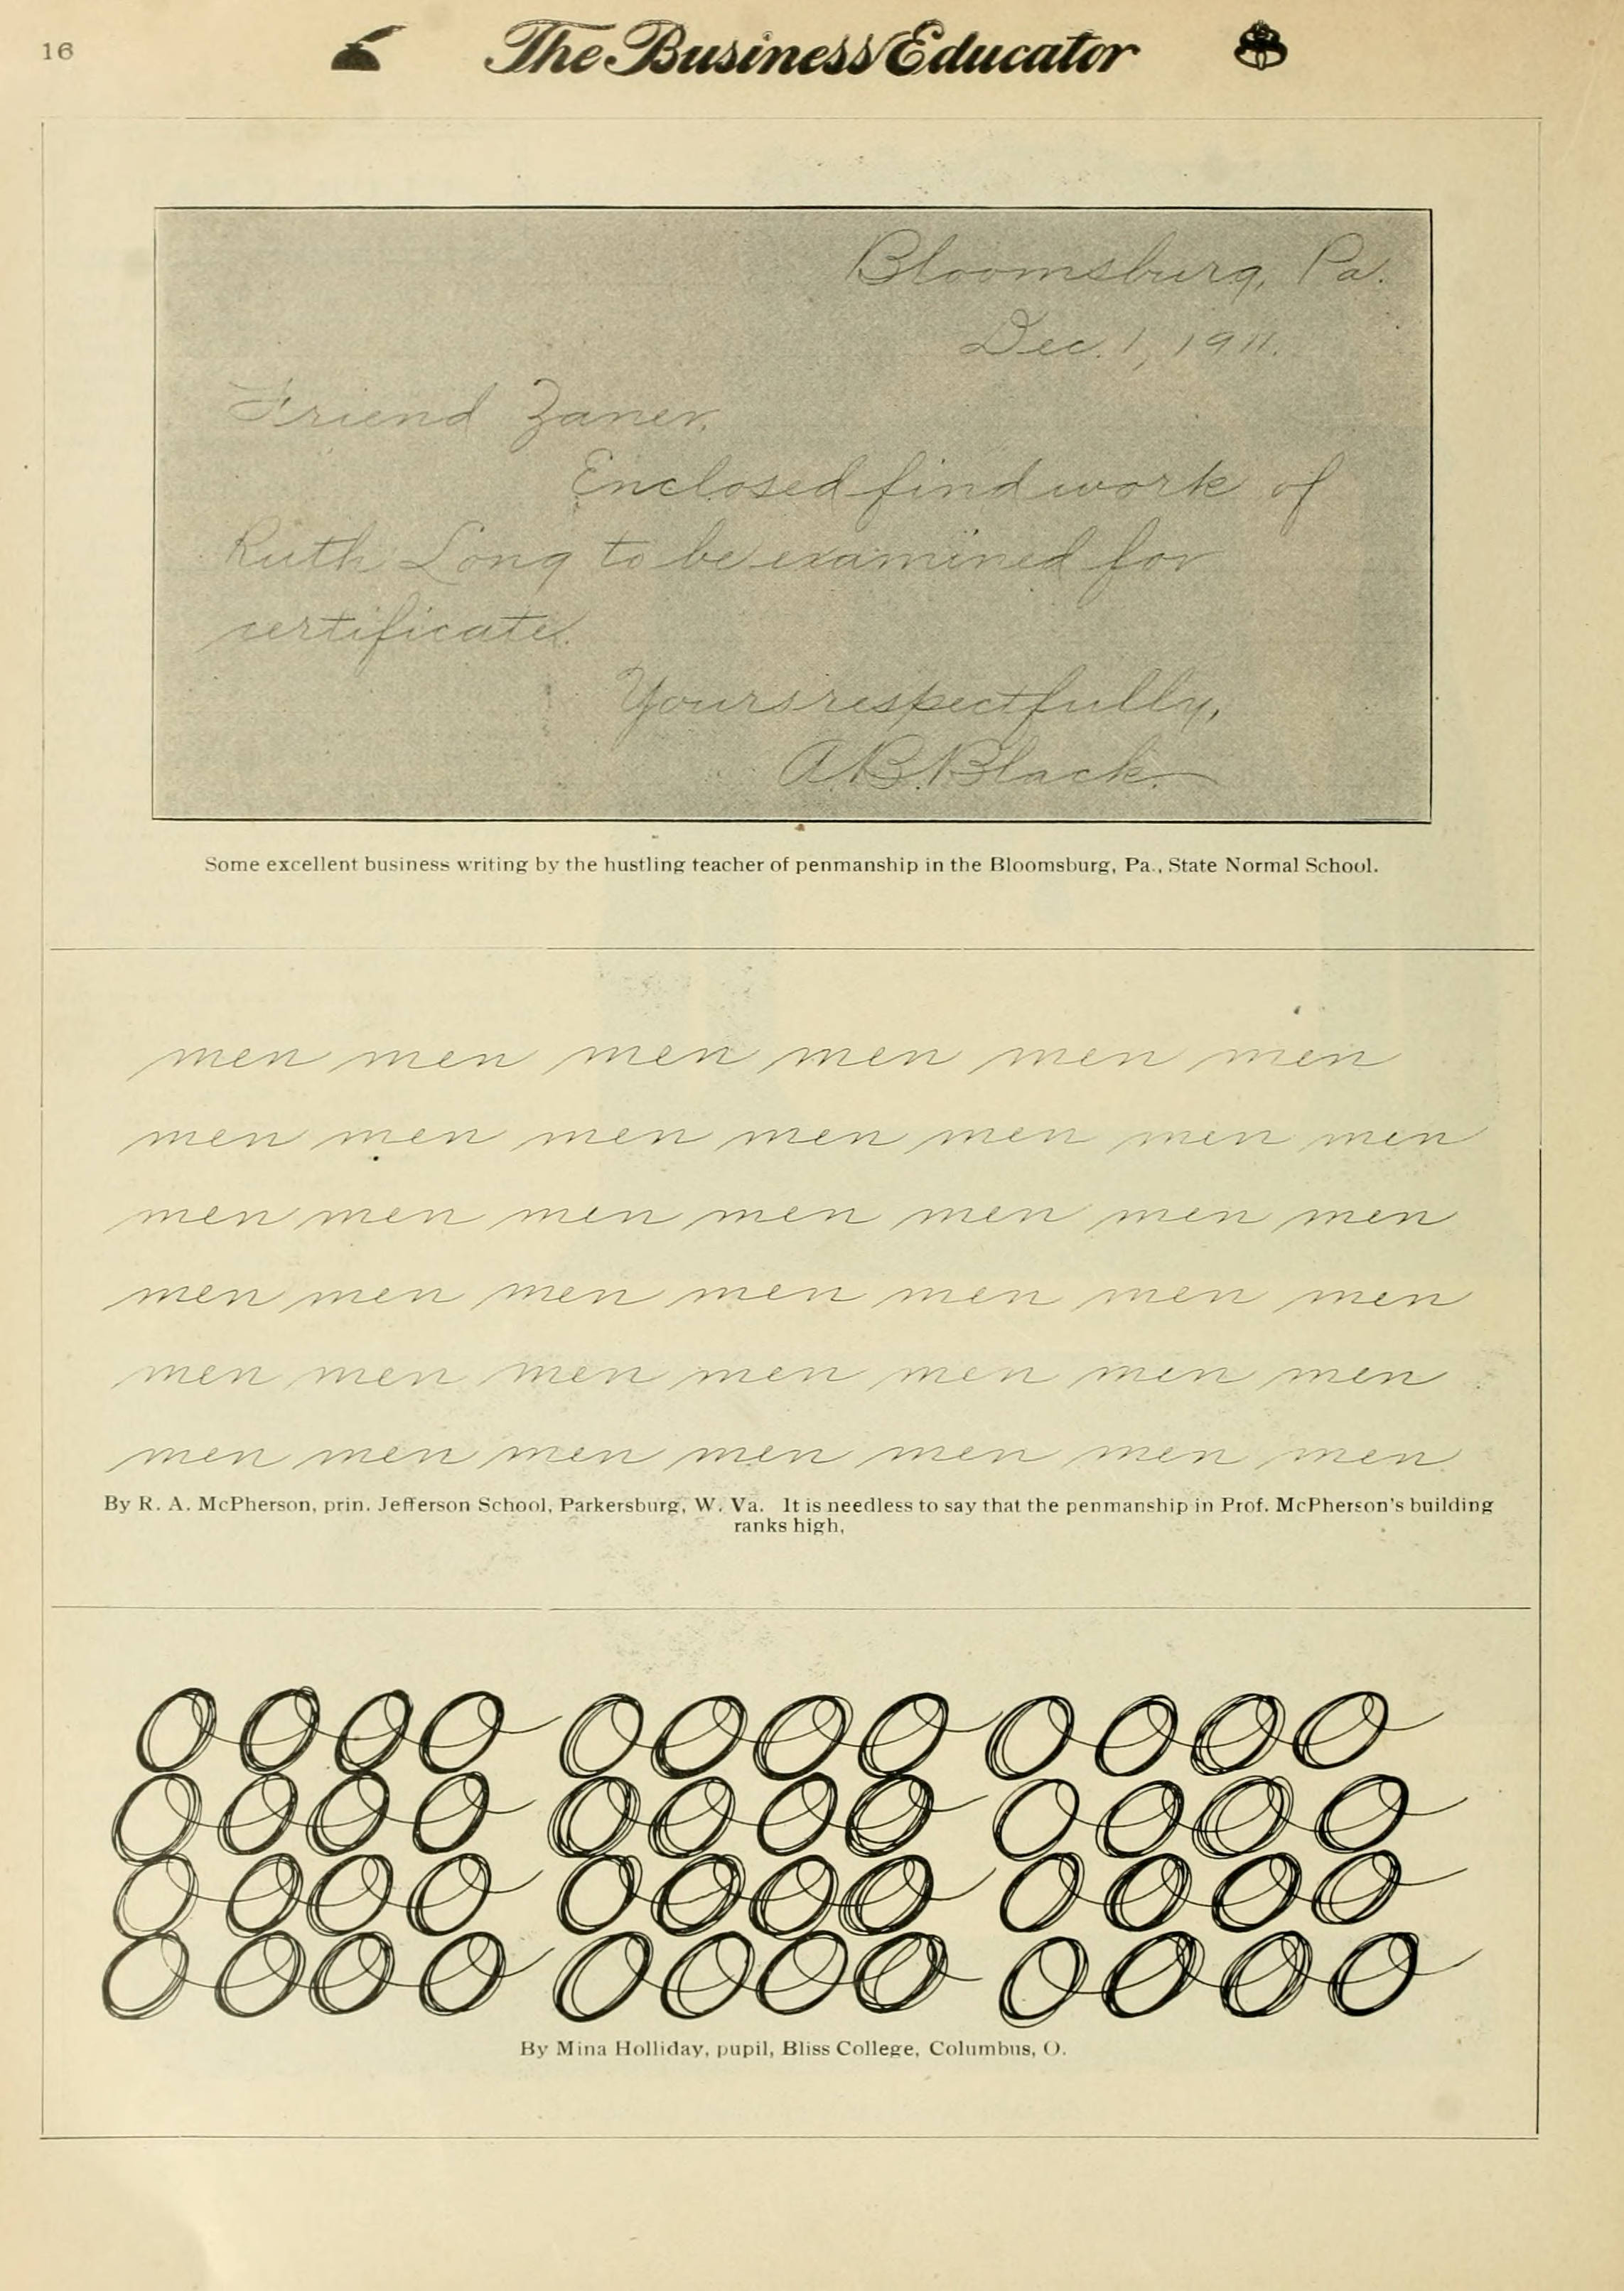 16
The Business Educator
Bloomsburg, Pa.
Dec. 1, 1911.
Friend Zaner,
Enclosed find work of
Ruth Long to be examined for
certificate.
Yours respectfully,
A.B. Black.
Some excellent business writing by the hustling teacher of penmanship in the Bloomsburg, Pa., State Normal School.
men men men men men men
men men men men men men men
men men men men men men men
men men men men men men men
men men men men men men men
men men men men men men men
By R. A. McPherson, prin. Jefferson School, Parkersburg, W. Va. It is needless to say that the penmanship in Prof. McPherson's building
ranks high,
O O O O O O O O O O O O
O O O O O O O O O O O O
O O O O O O O O O O O O
O O O O O O O O O O O O
By Mina Holliday, pupil, Bliss College, Columbus, O.